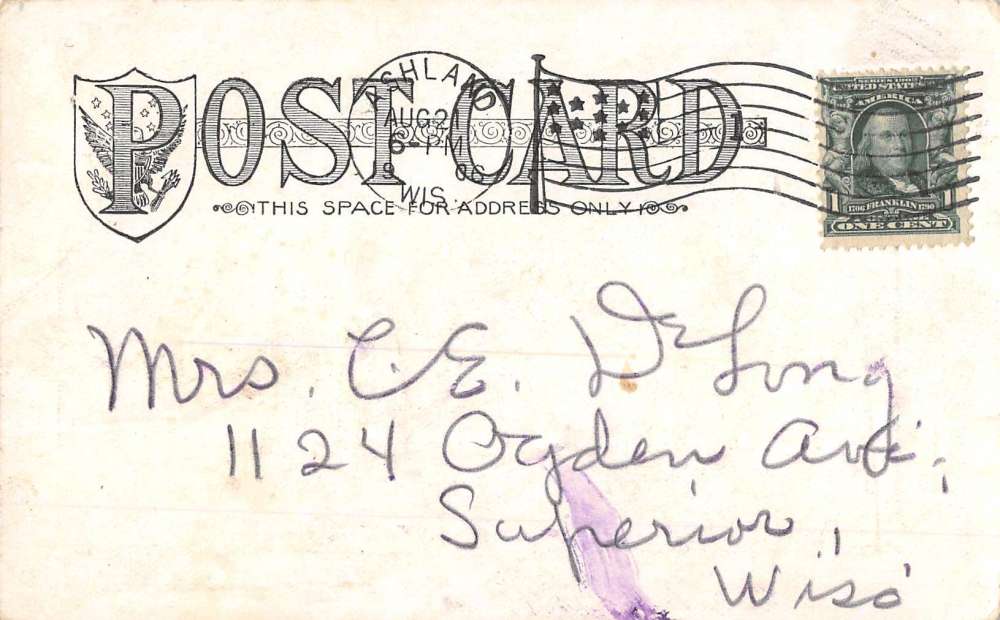 POST CARD
THIS SPACE FOR ADDRESS ONLY
ASHLAND
AUG 2
6-PM
06
WIS.
SERIES 1902
UNITED STATES
AMERICA
1706 FRANKLIN 1790
1 1
ONE CENT
Mrs. C. E. DeLong
1124 Ogden Ave.,
Superior,
Wiss